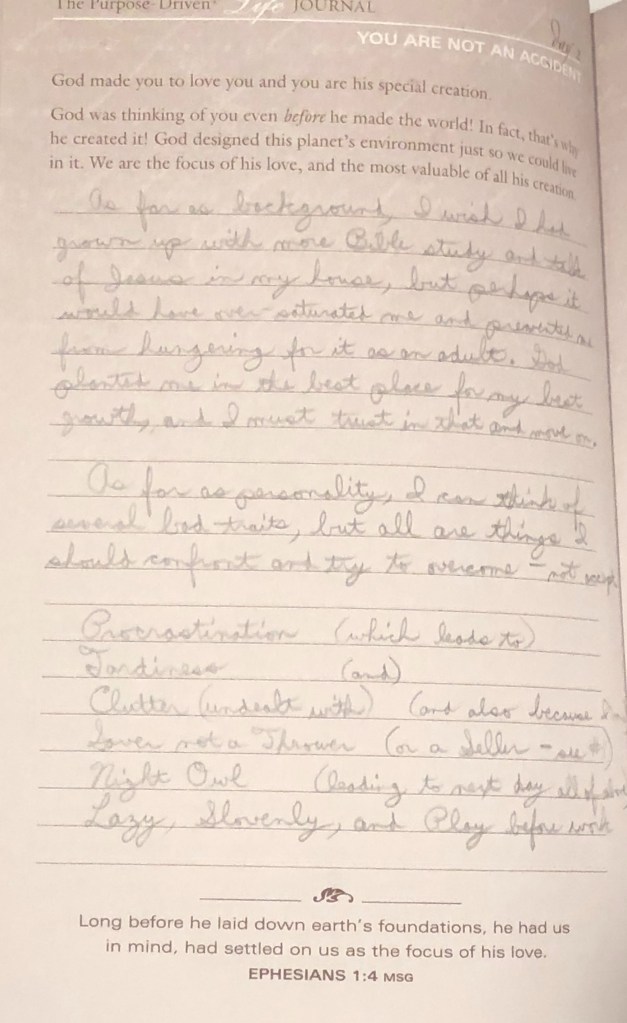 The Purpose-Driven® Life JOURNAL
Day 2
YOU ARE NOT AN ACCIDENT
God made you to love you and you are his special creation.
God was thinking of you even before he made the world! In fact, that's why
he created it! God designed this planet's environment just so we could live
in it. We are the focus of his love, and the most valuable of all his creation.
As far as background, I wish I had
grown up with more Bible study and talk
of Jesus in my house, but perhaps it
would have over saturated me and prevented me
from hungering for it as an adult. God
planted me in the best place for my best
growth, and I must trust in that and move on.
As far as personality, I can think of
several bad traits, but all are things I
should confront and try to overcome – not
Procrastination (which leads to)
Tardiness (and)
Clutter (undealt with) (and also because I'm
Saver not a Thrower (or a Seller – see
Night Owl (leading to next day all of above)
Lazy, Slovenly, and Play before work
Long before he laid down earth's foundations, he had us
in mind, had settled on us as the focus of his love.
EPHESIANS 1:4 MSG